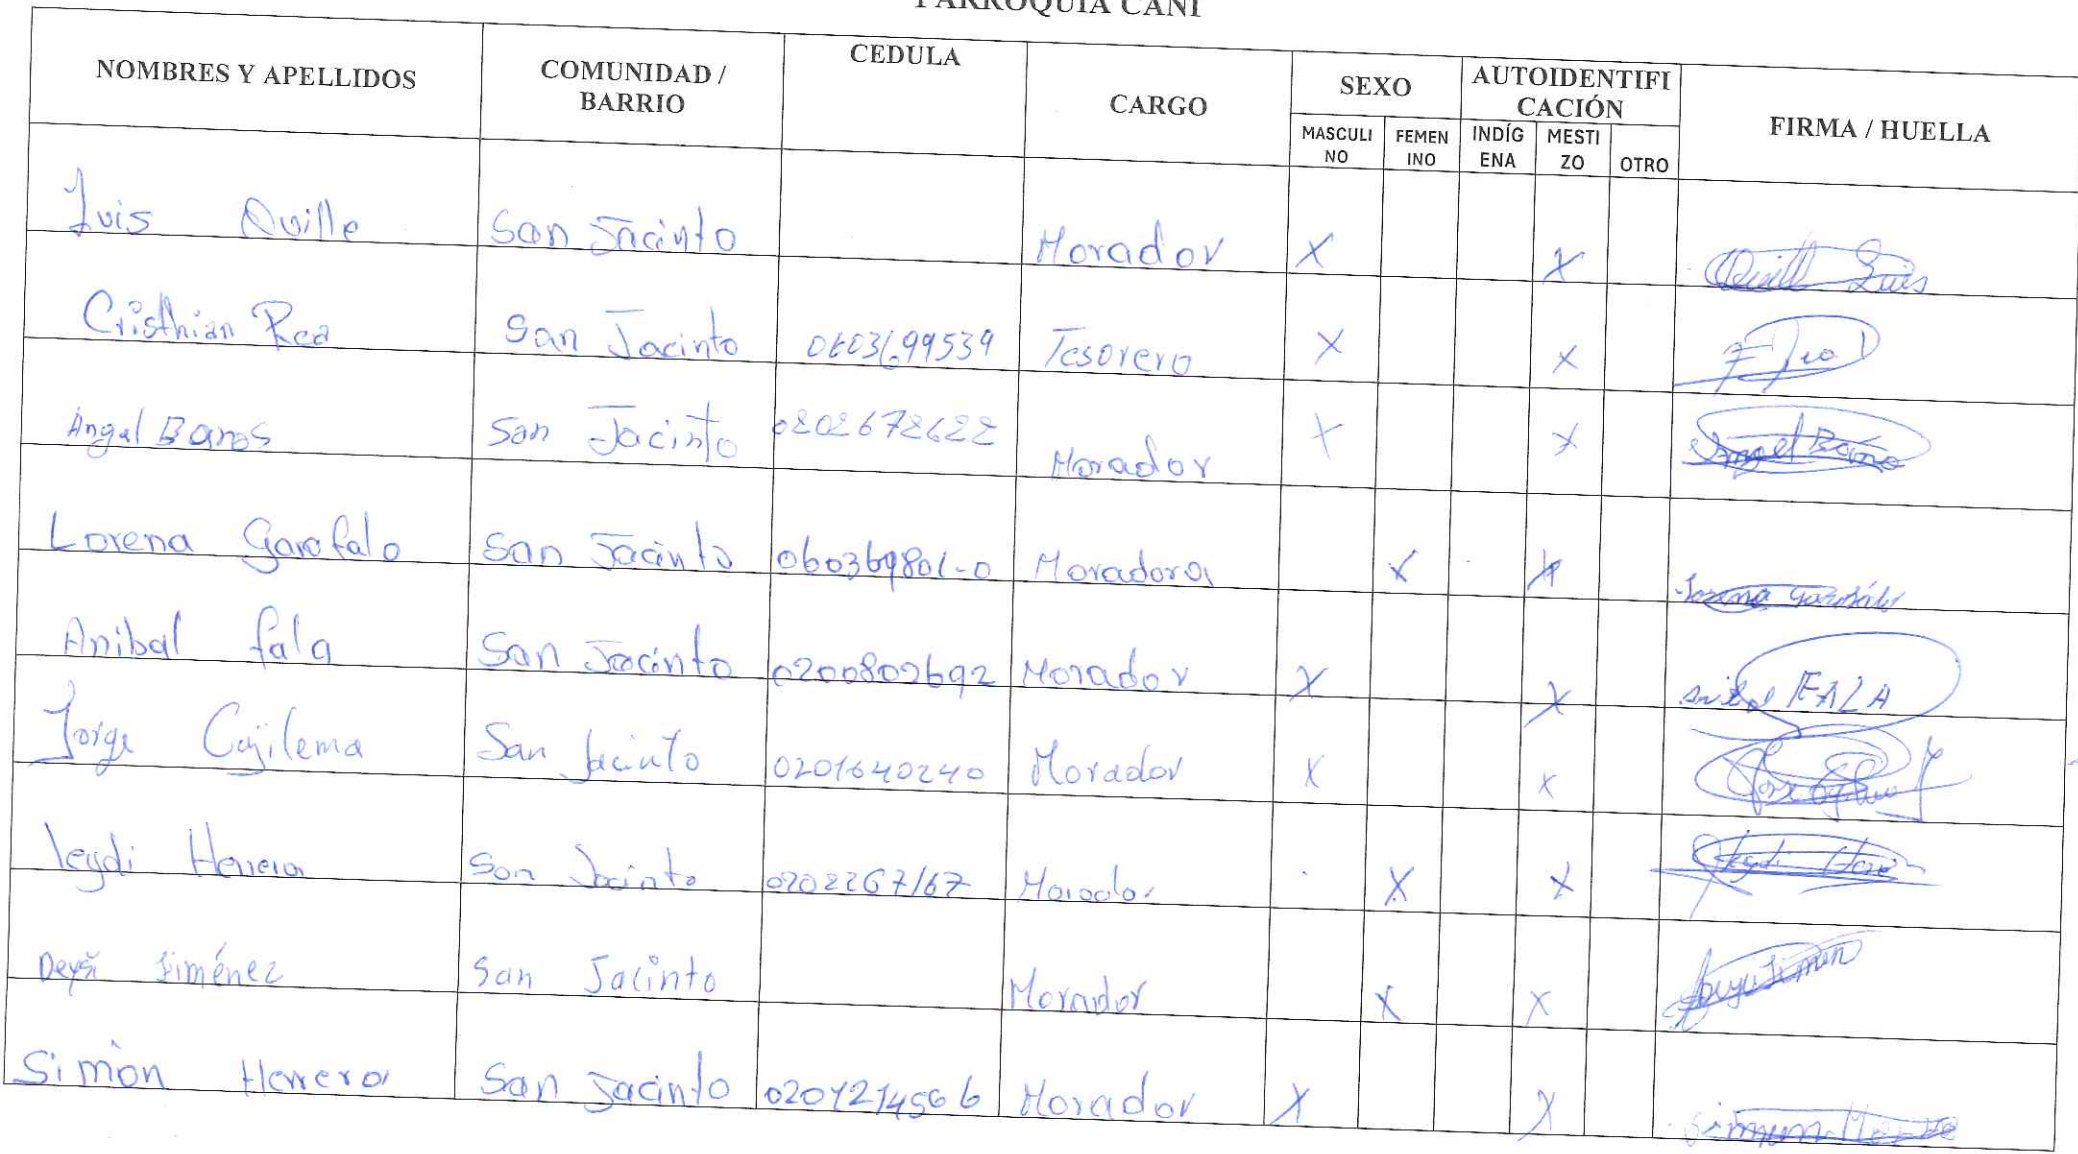 PARROQUIA CANI
NOMBRES Y APELLIDOS COMUNIDAD / BARRIO CEDULA CARGO SEXO AUTOIDENTIFICACIÓN FIRMA / HUELLA
MASCULINO FEMENINO INDÍGENA MESTIZO OTRO
Luis Quille San Jacinto Morador X X Quill Luis
Cristhian Rea San Jacinto 0603699539 Tesorero X X
Angel Banos San Jacinto 0202672622 Morador X X Angel Baño
Lorena Garofalo San Jacinto 060369801-0 Moradora X X Lorena Garofalo
Anibal fala San Jacinto 0200802692 Morador X X anibal FALA
Jorge Cujilema San Jacinto 0201640240 Morador X X
leydi Herrera San Jacinto 0202267167 Morador X X
Deysi Jiménez San Jacinto Morador X X
Simón Herrera San Jacinto Morador X X